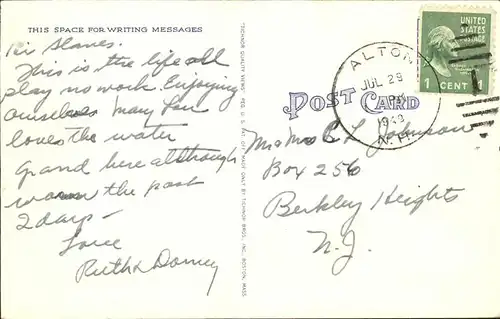 THIS SPACE FOR WRITING MESSAGES
Hi Slaves.
This is the life all
play no work. Enjoying
ourselves Mary Lou
loves the water
grand here although
warm the past
2 days -
Love
Ruth &
TICHNOR QUALITY VIEWS. REG. U. S. PAT. OFF. MADE ONLY BY TICHNOR BROS., INC., BOSTON, MASS.
POST CARD
ALTON
JUL 29
N.H.
UNITED STATES POSTAGE
1 CENT 1
Johnson
Box 256
Berkley Heights
N.J.